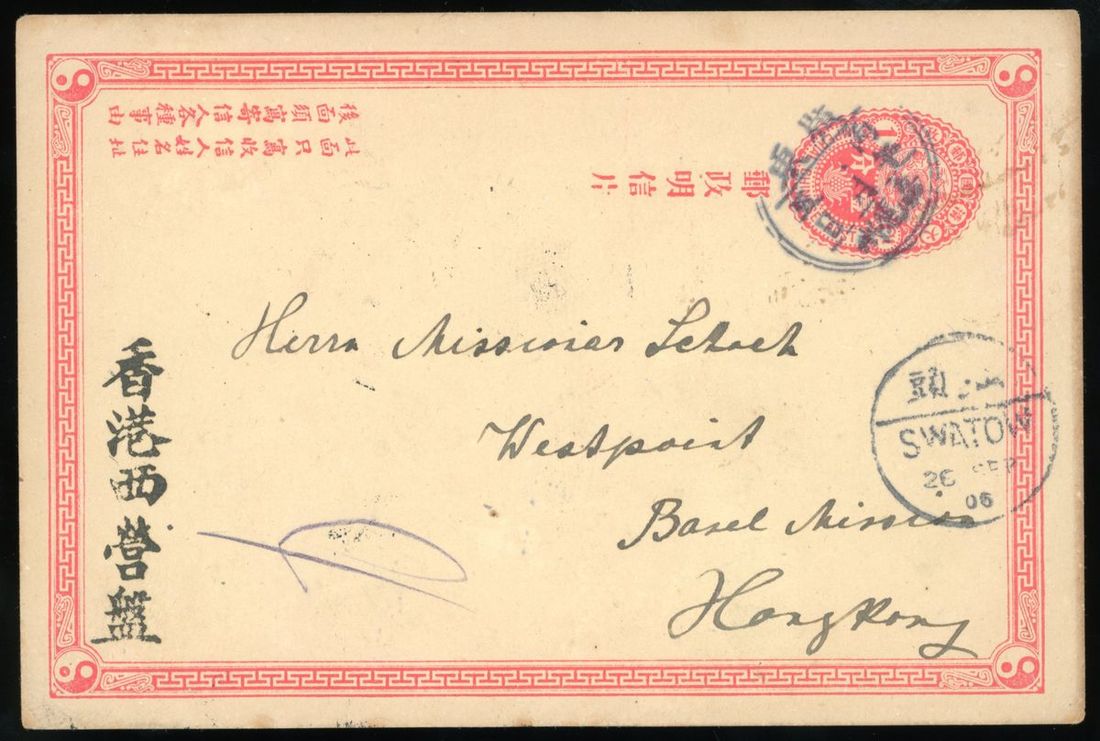 後面須寫寄信人各種事由
此面只寫收信人姓名住址
郵政明信片
Herrn Missionar Schoch
Westpoint
Basel Mission
Hongkong
香港西營盤
汕頭
SWATOW
26 SEP
06